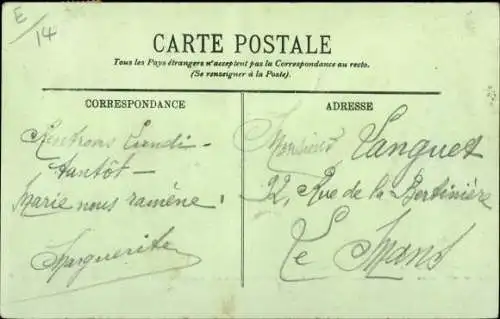 E/14
CARTE POSTALE
Tous les Pays étrangers n'acceptent pas la Correspondance au recto.
(Se renseigner à la Poste).
CORRESPONDANCE
ADRESSE
Rentrons Lundi -
tantôt -
Marie nous ramène !
Marguerite
Monsieur Vanguet
22, Rue de la Bertinière
Le Mans